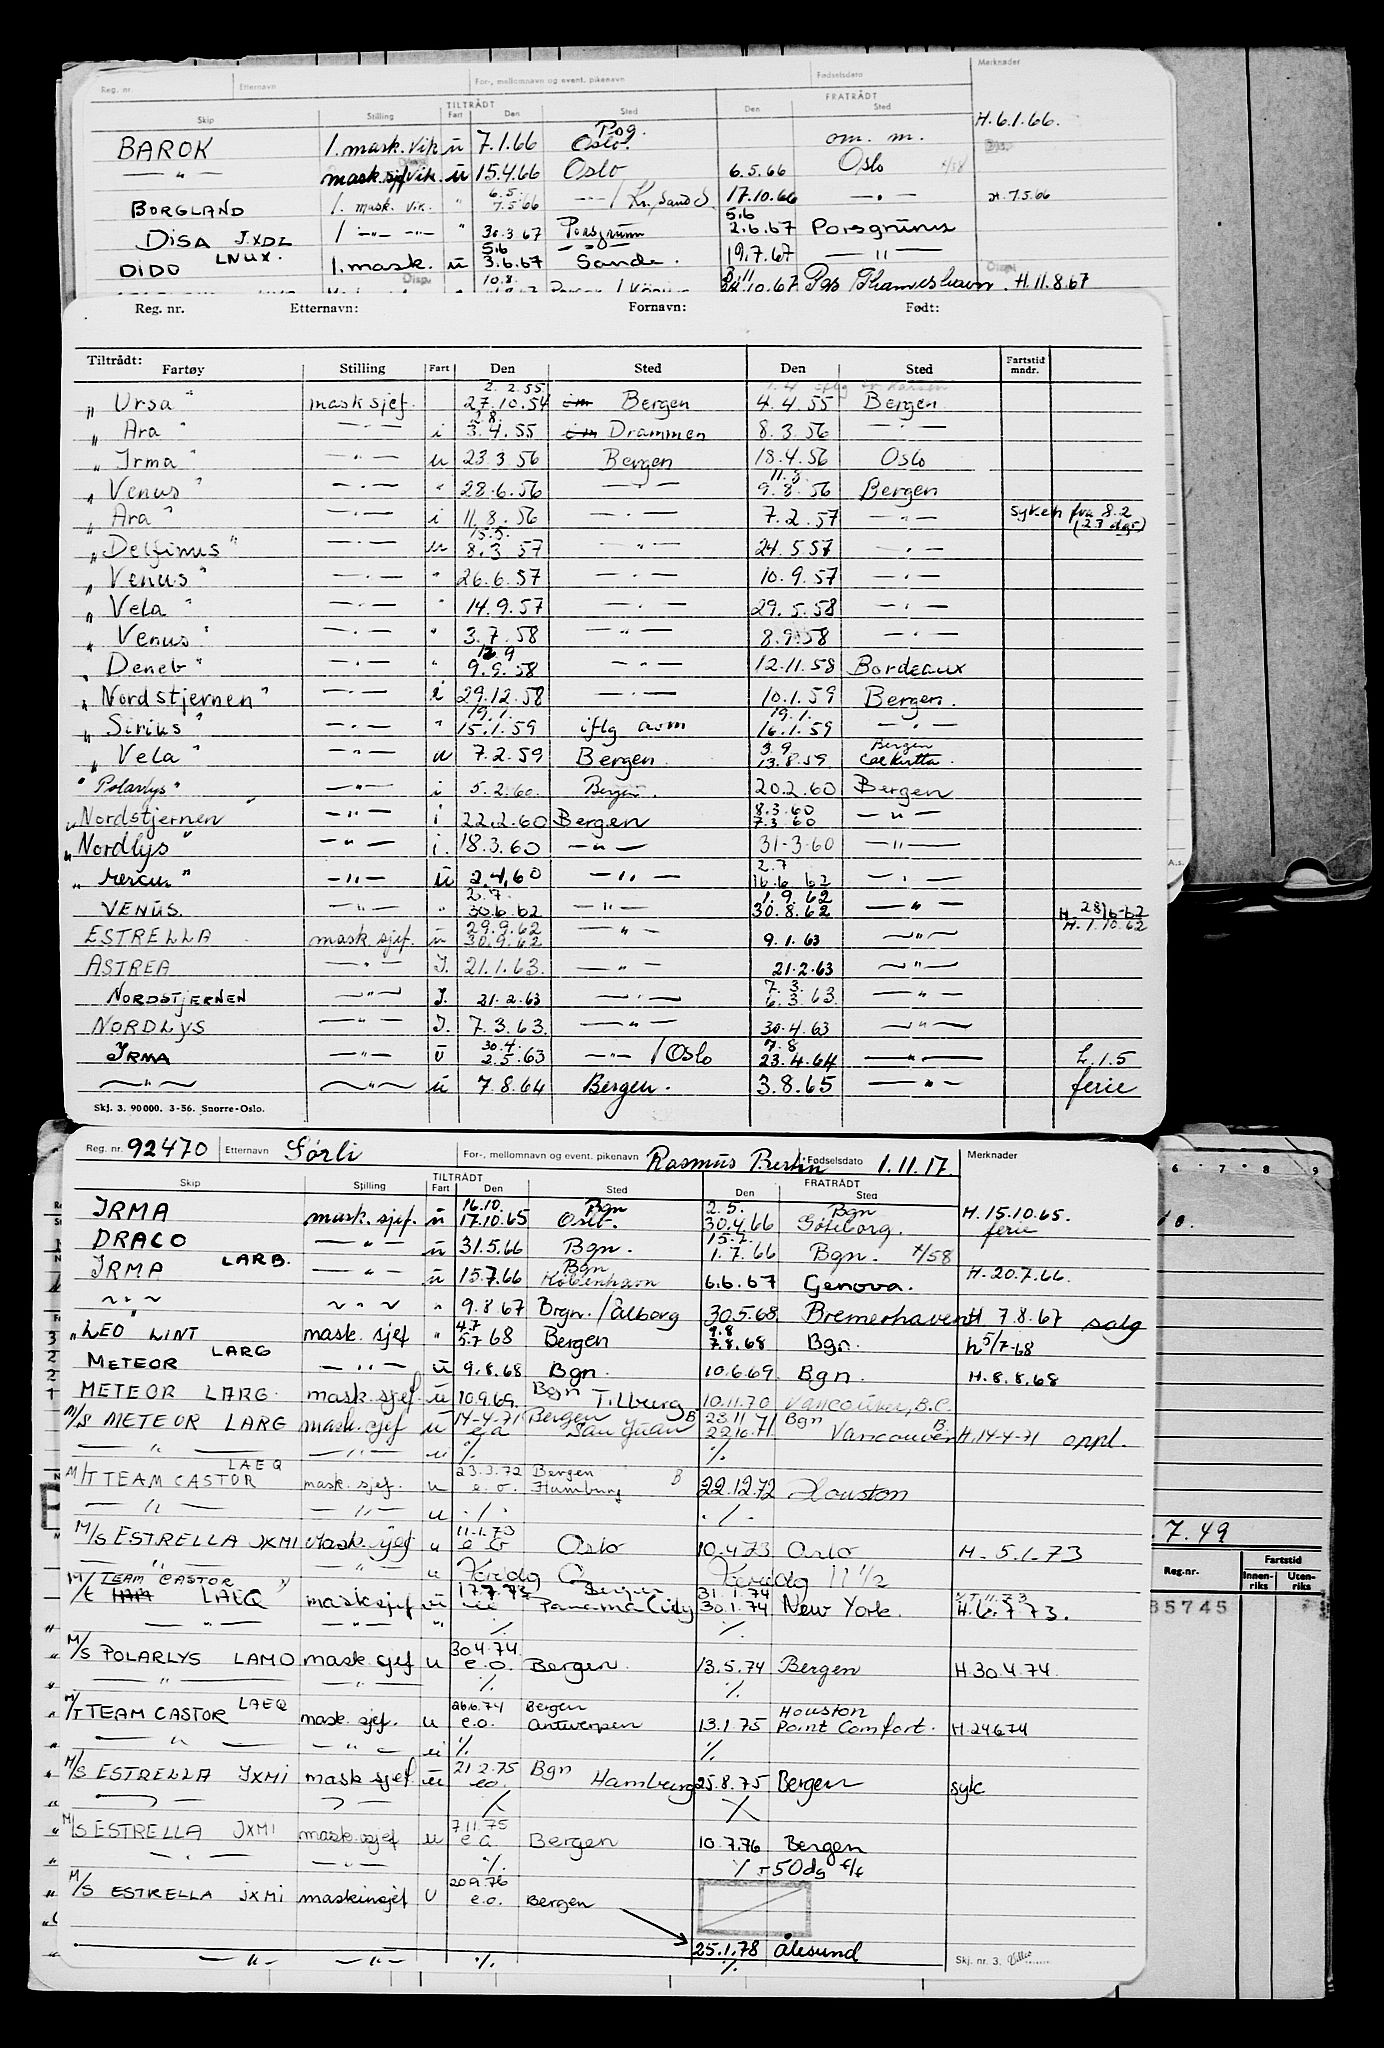 Reg. nr. Etternavn For-, mellomnavn og event. pikenavn Fødselsdato Merknader
TILTRÅDT FRATRÅDT
Skip Stilling Fart Den Sted Den Sted
H.6.1.66.
BAROK 1. mask. vik ū 7.1.66 Pog. Oslo. om. m.
— " — mask. sjef vik. ū 15.4.66 Oslo 6.5.66 Oslo 4/58
BORGLAND 1. mask. vik. " 6.5. 7.5.66 — / Kr.sand S. 17.10.66 — " — H. 7.5.66
DISA JXDZ 1 — " — — " — " 30.3.67 Porsgrunn 5.6 2.6.67 Porsgrunn
DIDO LNUX. 1. mask. ū 5.6 3.6.67 — " — Sande. 19.7.67 — " —
Disp. 10.8. 3.11 10.67 Pgs / Thamshavn. H. 11.8.67
Reg. nr. Etternavn: Fornavn: Født:
Tiltrådt: Fartøy Stilling Fart Den Sted Den Sted Fartstid mndr.
" Ursa " mask sjef. 2.2.55. 27.10.54 Bergen 4.4.55 Bergen
" Ara " — " — i 2.8. 3.4.55 Drammen 8.3.56 — " —
" Irma " — " — u 23.3.56 Bergen 18.4.56 Oslo
" Venus " — " — " 28.6.56 — " — 11.8. 9.8.56 Bergen
" Ara " — " — i 11.8.56 7.2.57 — " — syk eh fra 8.2 (23 dgr)
" Delfinus " — " — u 15.5. 8.3.57 — " — 24.5.57 — " —
" Venus " — " — " 26.6.57 — " — 10.9.57 — " —
" Vela " — " — " 14.9.57 — " — 29.5.58 — " —
" Venus " — " — " 3.7.58 — " — 8.9.58 — " —
" Deneb " — " — " 12.9 9.9.58 — " — 12.11.58 Bordeaux
" Nordstjernen " — " — i 29.12.58 — " — 10.1.59 Bergen.
" Sirius " — " — " 19.1. 15.1.59 iflg avm 19.1. 16.1.59 — " —
" Vela " — " — u 7.2.59 Bergen 3.9 13.8.59 Bergen Calkutta.
" Polarlys " — " — i 5.2.60. Bergen. 20.2.60 Bergen
" Nordstjernen " — " — i 22.2.60 Bergen 8.3.60 7.3.60 — " —
" Nordlys " — " — i. 18.3.60 — " — 31-3-60 — " —
" Mercur " — " — ū 2.4.60 — " — 2.7 16.6.62 — " —
VENUS. — " — " 2.7. 30.6.62 — " — 1.9.62 30.8.62 — " — H. 28/6-62
ESTRELLA mask sjef. ū 29.9.62 30.9.62 — " — 9.1.63 — " — H. 1.10.62
ASTREA — " — I. 21.1.63. — " — 21.2.63 — " —
NORDSTJERNEN — " — I. 21.2.63 — " — 7.3. 6.3.63. — " —
NORDLYS — " — I. 7.3.63. — " — 30.4.63 — " —
IRMA — " — ū 30.4. 2.5.63 — " — / Oslo 7.8 23.4.64 — " — h.1.5
— " — — " — ū 7.8.64 Bergen. 3.8.65 — " — ferie
Skj. 3. 90000. 3-56. Snorre-Oslo.
Reg. nr. 92470 Etternavn Sørli For-, mellomnavn og event. pikenavn Rasmus Prestin Fødselsdato 1.11.17. Merknader
TILTRÅDT FRATRÅDT
Skip Stilling Fart Den Sted Den Sted
IRMA mask. sjef. ū 16.10. 17.10.65 Bgn Oslo. 2.5. 30.4.66 Bgn Göteborg. H.15.10.65. ferie
DRACO — " — ū 31.5.66 Bgn. 15.7. 1.7.66 Bgn. 4/58
IRMA LARB. — " — ū 15.7.66 Bgn København 6.6.67 Genova. H.20.7.66.
— " — — " — " 9.8.67 Brgn. / Ålborg 30.5.68 Bremerhaven H 7.8.67 salg
" LEO " LINT mask. sjef " 4.7 5.7.68 Bergen 9.8 7.8.68 Bgn. h5/7-68
METEOR LARG — " — ū 9.8.68 Bgn. 10.6.69 Bgn. H.8.8.68
METEOR LARG. mask. sjef ū 10.9.69. Bgn Tilburg 10.11.70 Vancouver, B.C.
M/S METEOR LARG mask. sjef u 14-4-71 e.o Bergen San Juan B 23.11.71 22.10.71 Bgn Vancouver B H.14-4-71 oppl.
— " — — " — u ./. ./.
M/T TEAM CASTOR LAEQ mask. sjef. u 23.3.72 e.o. Bergen Hamburg B 22.12.72 Houston
— " — — " — u ./. ./.
M/S ESTRELLA JXMI Mask. sjef u 11-1-73 e o Oslo 10.4.73 Oslo H. 5.1.73
— " — " u
M/t TEAM CASTOR LAEQ mask sjef ū 17.7.73 Bergen Panama City 31.1.74 30.1.74 New York. H.6.7.73.
" — " — — " — " ./. ./.
M/S POLARLYS LAMD mask. sjef u 30.4.74 e.o. Bergen. 13.5.74 Bergen H.30.4.74.
— " — — " — ./. ./.
M/T TEAM CASTOR LAEQ mask. sjef. u 26.6.74 e.o. Bergen Antwerpen 13.1.75 Houston Point Comfort. H.24.6.74
— " — — " — ū ./. ./.
M/S ESTRELLA JXMI mask sjef ū 21.2.75 eo. Bgn Hamburg 25.8.75 Bergen syk
./. ./.
M/S ESTRELLA JXMI mask.sjef u 7.11.75 e o Bergen 10.7.76 Bergen
— " — — " — ./. ./. + 50 dg f/f
M/S ESTRELLA JXMI maskinsjef U 20.9.76 e.o. Bergen
25.1.78 Ålesund
— " — — " — ./. ./.
Skj. nr. 3.
6 7 8 9
.7.49
Reg.nr. Fartstid Innen-riks Uten-riks
35745